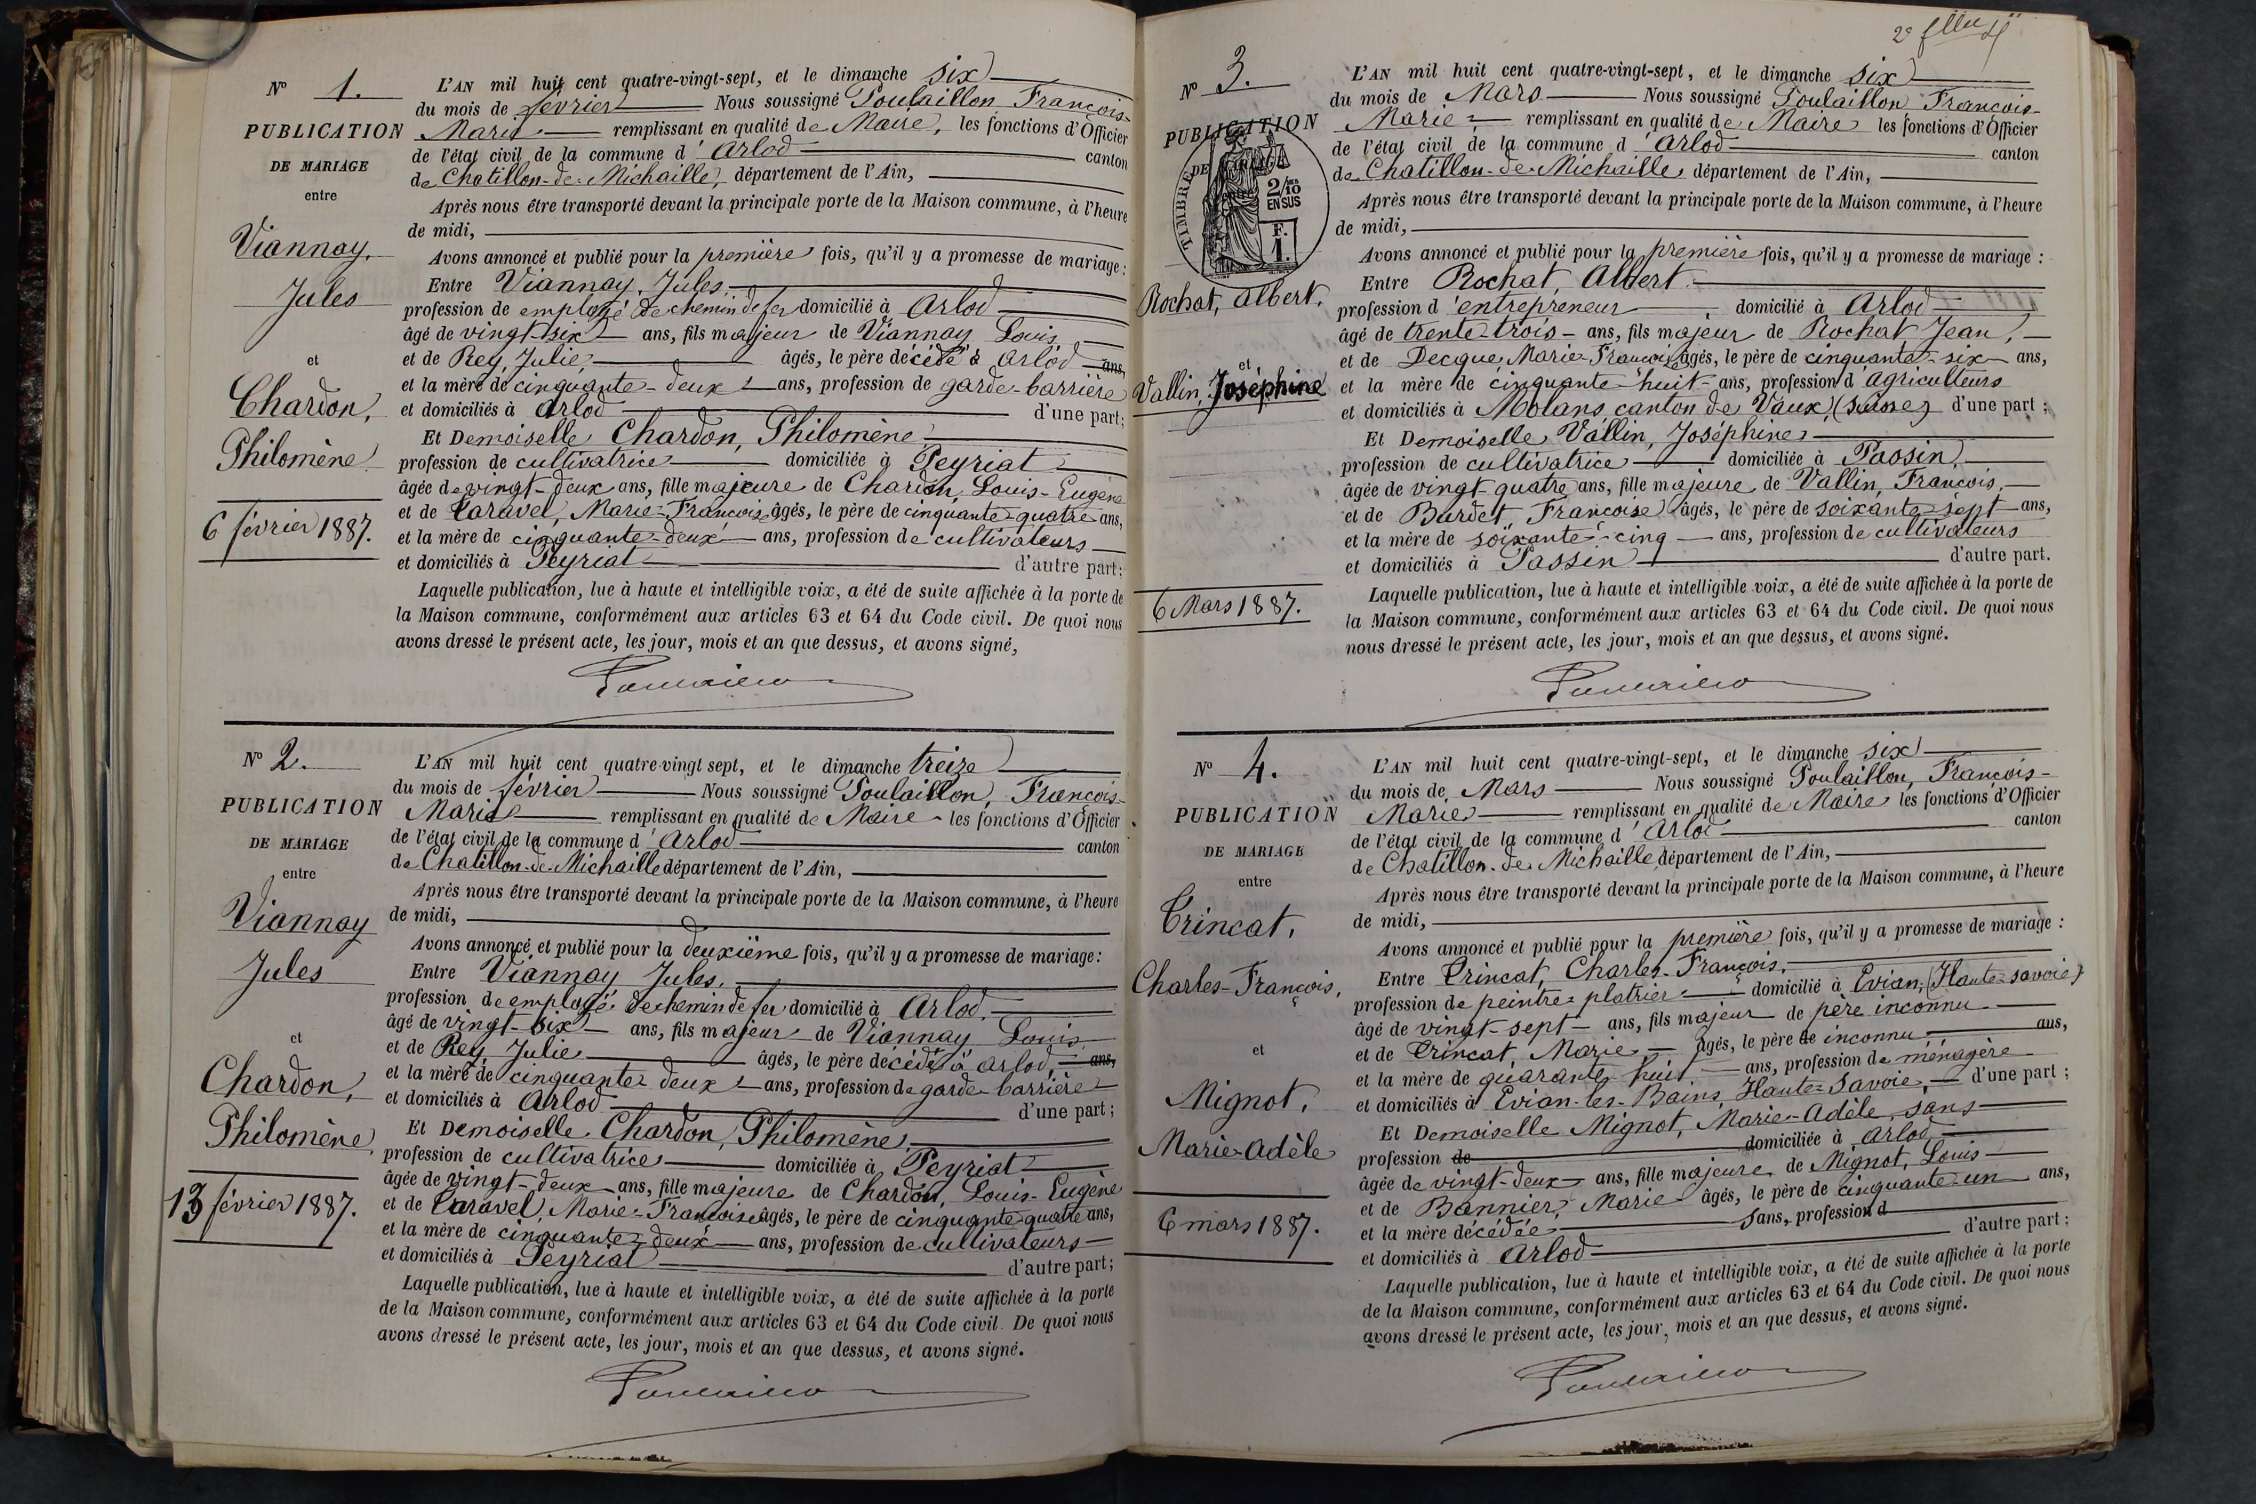 N° 1.
PUBLICATION
DE MARIAGE
entre
Viannay,
Jules
et
Chardon,
Philomène
6 février 1887.
L'AN mil huit cent quatre-vingt-sept, et le dimanche six
du mois de février Nous soussigné Poulaillon François-
Marie remplissant en qualité de Maire, les fonctions d'Officier
de l'état civil de la commune d'Arlod canton
de Chatillon-de-Michaille, département de l'Ain,
Après nous être transporté devant la principale porte de la Maison commune, à l'heure
de midi,
Avons annoncé et publié pour la première fois, qu'il y a promesse de mariage:
Entre Viannay, Jules,
profession de employé de chemin de fer domicilié à Arlod
âgé de vingt-six ans, fils majeur de Viannay Louis
et de Rey, Julie, âgés, le père décédé à Arlod ans,
et la mère de cinquante-deux ans, profession de garde-barrière
et domiciliés à Arlod d'une part;
Et Demoiselle Chardon, Philomène
profession de cultivatrice domiciliée à Peyriat
âgée de vingt-deux ans, fille majeure de Chardon, Louis-Eugène
et de Caravel, Marie-Françoise âgés, le père de cinquante-quatre ans,
et la mère de cinquante-deux ans, profession de cultivateurs
et domiciliés à Peyriat d'autre part;
Laquelle publication, lue à haute et intelligible voix, a été de suite affichée à la porte de
la Maison commune, conformément aux articles 63 et 64 du Code civil. De quoi nous
avons dressé le présent acte, les jour, mois et an que dessus, et avons signé,
Poulaillon
N° 2.
PUBLICATION
DE MARIAGE
entre
Viannay
Jules
et
Chardon,
Philomène,
13 février 1887.
L'AN mil huit cent quatre-vingt sept, et le dimanche treize
du mois de février Nous soussigné Poulaillon, François-
Marie remplissant en qualité de Maire les fonctions d'Officier
de l'état civil de la commune d'Arlod canton
de Chatillon-de-Michaille département de l'Ain,
Après nous être transporté devant la principale porte de la Maison commune, à l'heure
de midi,
Avons annoncé et publié pour la deuxième fois, qu'il y a promesse de mariage:
Entre Viannay Jules,
profession de employé de chemin de fer domicilié à Arlod.
âgé de vingt-six ans, fils majeur de Viannay Louis
et de Rey, Julie âgés, le père décédé à Arlod, ans,
et la mère de cinquante-deux ans, profession de garde-barrière
et domiciliés à Arlod d'une part;
Et Demoiselle Chardon, Philomène,
profession de cultivatrice domiciliée à Peyriat
âgée de vingt-deux ans, fille majeure de Chardon, Louis-Eugène
et de Caravel, Marie-Françoise âgés, le père de cinquante quatre ans,
et la mère de cinquante-deux ans, profession de cultivateurs
et domiciliés à Peyriat d'autre part;
Laquelle publication, lue à haute et intelligible voix, a été de suite affichée à la porte
de la Maison commune, conformément aux articles 63 et 64 du Code civil. De quoi nous
avons dressé le présent acte, les jour, mois et an que dessus, et avons signé.
Poulaillon
N° 3.
PUBLICATION
DE MARIAGE
entre
TIMBRE
2/10
EN SUS
F.
1.
Rochat, Albert,
et
Vallin, Joséphine
6 Mars 1887.
L'AN mil huit cent quatre-vingt-sept, et le dimanche six
du mois de Mars Nous soussigné Poulaillon François-
Marie, remplissant en qualité de Maire les fonctions d'Officier
de l'état civil de la commune d'Arlod canton
de Chatillon-de-Michaille département de l'Ain,
Après nous être transporté devant la principale porte de la Maison commune, à l'heure
de midi,
Avons annoncé et publié pour la première fois, qu'il y a promesse de mariage:
Entre Rochat, Albert
profession d'entrepreneur domicilié à Arlod
âgé de trente-trois ans, fils majeur de Rochat Jean,
et de Decque, Marie-Françoise âgés, le père de cinquante-six ans,
et la mère de cinquante-huit ans, profession d'agriculteurs
et domiciliés à Molans canton de Vaux, (Suisse) d'une part;
Et Demoiselle Vallin, Joséphine
profession de cultivatrice domiciliée à Passin,
âgée de vingt quatre ans, fille majeure de Vallin, François,
et de Burdet, Françoise âgés, le père de soixante-sept ans,
et la mère de soixante-cinq ans, profession de cultivateurs
et domiciliés à Passin d'autre part.
Laquelle publication, lue à haute et intelligible voix, a été de suite affichée à la porte de
la Maison commune, conformément aux articles 63 et 64 du Code civil. De quoi nous
nous dressé le présent acte, les jour, mois et an que dessus, et avons signé.
Poulaillon
N° 4.
PUBLICATION
DE MARIAGE
entre
Crincat,
Charles-François,
et
Mignot,
Marie-Adèle
6 mars 1887.
L'AN mil huit cent quatre-vingt-sept, et le dimanche six
du mois de Mars Nous soussigné Poulaillon, François-
Marie remplissant en qualité de Maire les fonctions d'Officier
de l'état civil de la commune d'Arlod canton
de Chatillon-de-Michaille département de l'Ain,
Après nous être transporté devant la principale porte de la Maison commune, à l'heure
de midi,
Avons annoncé et publié pour la première fois, qu'il y a promesse de mariage:
Entre Crincat, Charles-François,
profession de peintre platrier domicilié à Evian, (Haute-Savoie)
âgé de vingt-sept ans, fils majeur de père inconnu
et de Crincat, Marie âgés, le père de inconnu ans,
et la mère de quarante-huit ans, profession de ménagère
et domiciliés à Evian-les-Bains, Haute-Savoie, d'une part;
Et Demoiselle Mignot, Marie-Adèle, sans
profession de domiciliée à Arlod,
âgée de vingt-deux ans, fille majeure de Mignot, Louis
et de Bannier, Marie âgés, le père de cinquante-un ans,
et la mère décédée sans, profession d
et domiciliés à Arlod d'autre part;
Laquelle publication, lue à haute et intelligible voix, a été de suite affichée à la porte
de la Maison commune, conformément aux articles 63 et 64 du Code civil. De quoi nous
avons dressé le présent acte, les jour, mois et an que dessus, et avons signé.
Poulaillon